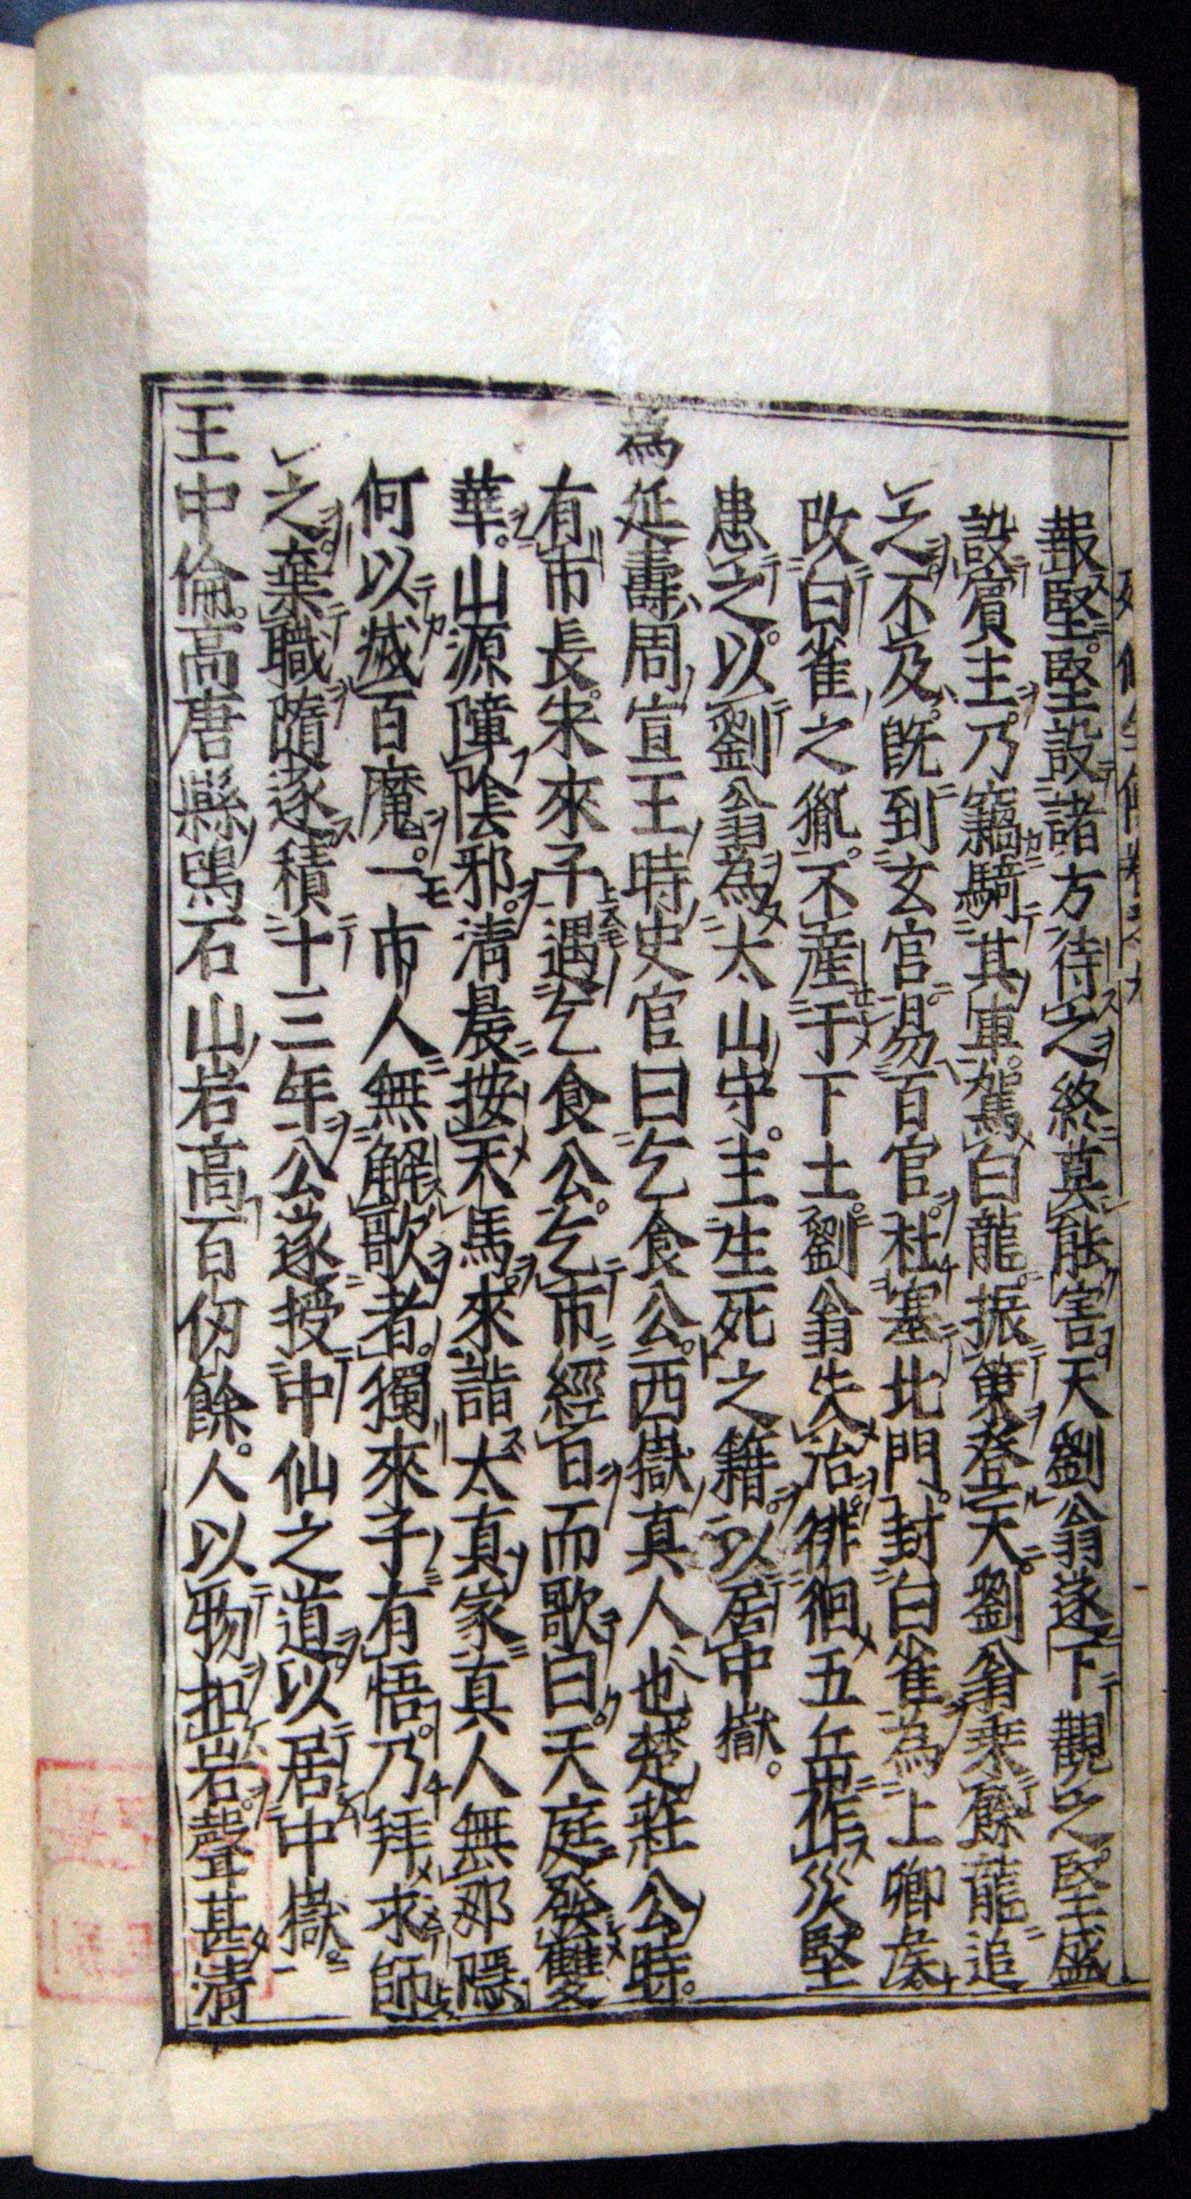 報堅堅設諸方待之終莫能害天劉翁遂下觀之堅盛
設賓主乃竊騎其車駕白龍振策登天劉翁乘餘龍追
之不及既到玄宮易百官杜塞北門封白雀為上卿矦
改白雀之胤不産于下土劉翁失治徘徊五岳作災堅
患之以劉翁為太山守主生死之籍以居中嶽
為延壽周宣王時史官曰乞食公西嶽真人也楚莊公時
有市長宋來子遇乞食公乞市經百而歌曰天庭發雙
華山源障陰邪清晨按天馬來詣太真家真人無那隱
何以滅百魔一市人無解歌者獨來子有悟乃拜求師
之棄職隨逐積十三年公遂授中仙之道以居中嶽
王中倫高唐縣鳴石山岩高百仞餘人以物扣岩聲甚清